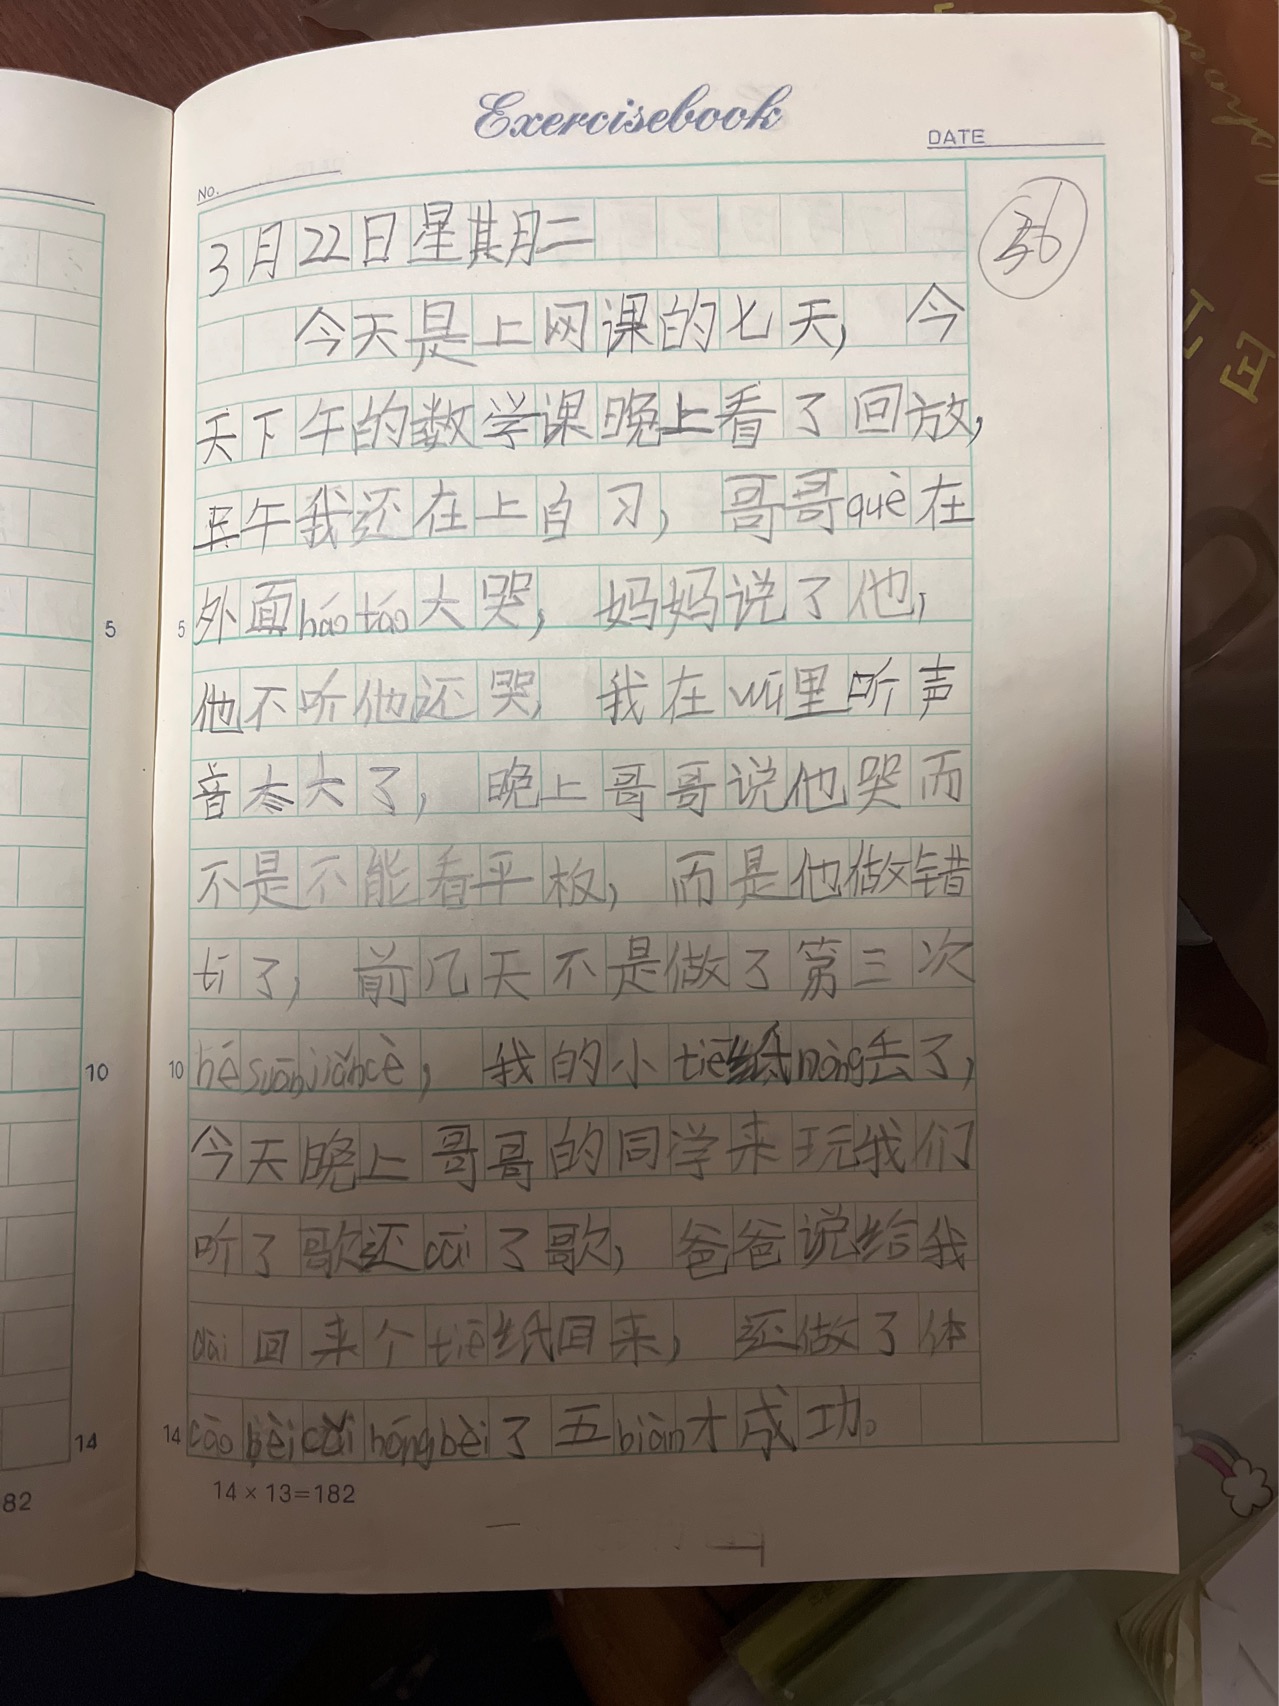 Exercisebook
DATE
No.
36
3月22日星其月二
今天是上网课的七天，今
天下午的数学课晚上看了回放，
午我还在上自习，哥哥què在
外面háotáo大哭，妈妈说了他，
他不听他还哭，我在wū里听声
音太大了，晚上哥哥说他哭而
不是不能看平板，而是他做错
tí了，前几天不是做了第三次
hésuānjiǎncè，我的小tiē纸nòng丢了，
今天晚上哥哥的同学来玩我们
听了歌还cāi了歌，爸爸说给我
dài回来个tiē纸回来，还做了体
cāo bèi了五biàn才成功。
5
5
10
10
14
14
14×13=182
82